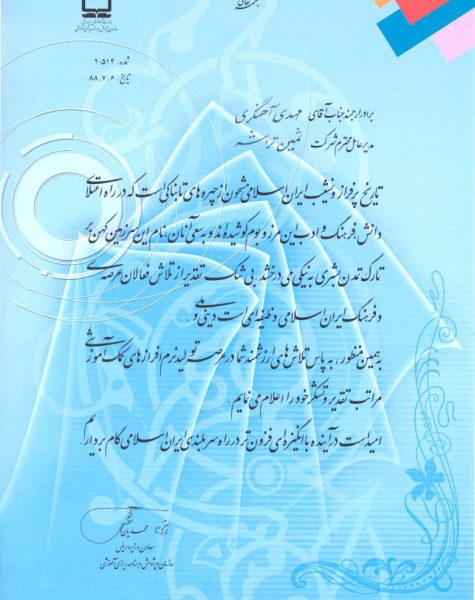 بسمه تعالی
سازمان پژوهش و برنامه ریزی آموزشی
شماره: ۲۰۵۱۴
تاریخ: ۸۸,۷,۶
برادر ارجمند جناب آقای مهدی آهنگری
مدیر عامل محترم شرکت ثمین تراشه
تاریخ پر فراز و نشیب ایران اسلامی مشحون از چهره های تابناکی است که در راه اعتلای
دانش، فرهنگ و ادب این مرز و بوم کوشیده اند و به سعی آنان، نام این سرزمین کهن بر
تارک تمدن بشری به نیکی می درخشد. بی شک تقدیر از تلاش فعالان عرصه ی
و فرهنگ ایران اسلامی وظیفه ای است دینی و ملی
بهمین منظور، به پاس تلاش های ارزشمند شما در عرصه تولید نرم افزارهای کمک آموزشی
مراتب تقدیر و تشکر خود را اعلام می نمایم.
امید است در آینده با انگیزه ی فزون تر در راه سربلندی ایران اسلامی گام برداریم.
محمدیان
معاون وزیر و رییس
سازمان پژوهش و برنامه ریزی آموزشی